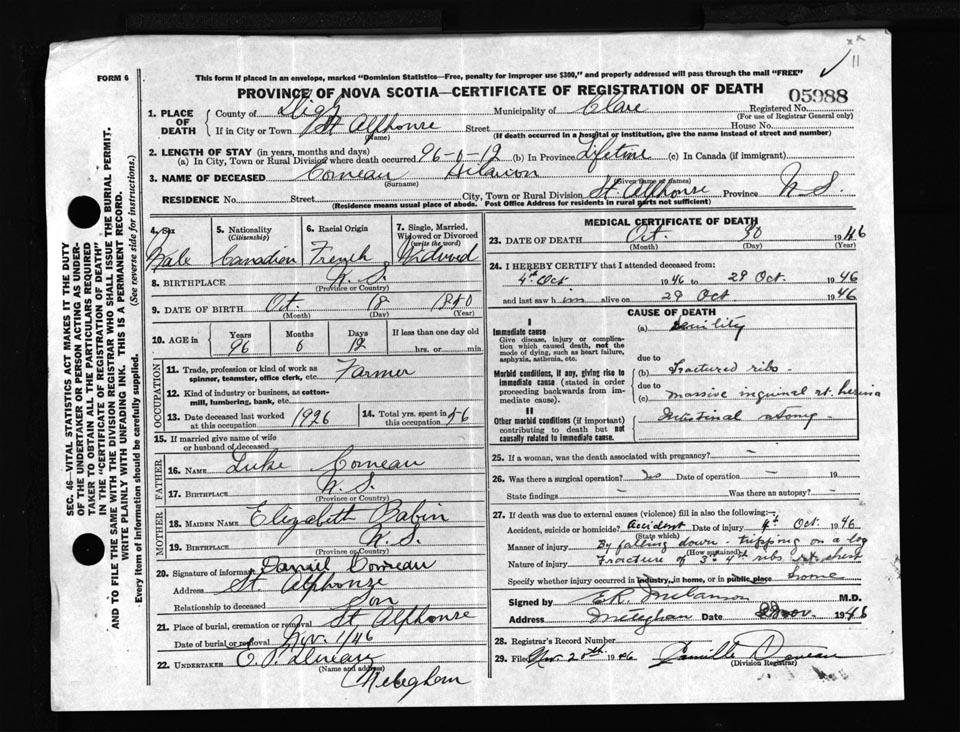 FORM 6
This form if placed in an envelope, marked "Dominion Statistics—Free, penalty for improper use $300," and properly addressed will pass through the mail "FREE"
PROVINCE OF NOVA SCOTIA—CERTIFICATE OF REGISTRATION OF DEATH
05988
11
1. PLACE OF DEATH County of Digby Municipality of Clare Registered No.
(For use of Registrar General only)
If in City or Town St Alphonse Street House No.
(Name) (If death occurred in a hospital or institution, give the name instead of street and number)
2. LENGTH OF STAY (in years, months and days)
(a) In City, Town or Rural Division where death occurred 96-0-12 (b) In Province Lifetime (c) In Canada (if immigrant)
3. NAME OF DECEASED Comeau Hilarion
(Surname) (Given name or names)
RESIDENCE No. Street City, Town or Rural Division St. Alphonse Province N.S.
(Residence means usual place of abode. Post Office Address for residents in rural parts not sufficient)
SEC. 46—VITAL STATISTICS ACT MAKES IT THE DUTY
OF THE UNDERTAKER OR PERSON ACTING AS UNDER-
TAKER TO OBTAIN ALL THE PARTICULARS REQUIRED
IN THE "CERTIFICATE OF REGISTRATION OF DEATH"
AND TO FILE THE SAME WITH THE DIVISION REGISTRAR WHO SHALL ISSUE THE BURIAL PERMIT.
WRITE PLAINLY WITH UNFADING INK. THIS IS A PERMANENT RECORD.
Every item of information should be carefully supplied. (See reverse side for instructions.)
4. Sex
Male
5. Nationality
(Citizenship)
Canadian
6. Racial Origin
French
7. Single, Married, Widowed or Divorced
(write the word)
Widowed
8. BIRTHPLACE N.S.
(Province or Country)
9. DATE OF BIRTH Oct. 18 1850
(Month) (Day) (Year)
10. AGE in Years Months Days If less than one day old
96 0 12 hrs. or min.
OCCUPATION
11. Trade, profession or kind of work as Farmer
spinner, teamster, office clerk, etc.
12. Kind of industry or business, as cotton-
mill, lumbering, bank, etc.
13. Date deceased last worked at this occupation 1926
14. Total yrs. spent in this occupation 56
15. If married give name of wife or husband of deceased
FATHER
16. NAME Luke Comeau
17. BIRTHPLACE N.S.
(Province or Country)
MOTHER
18. MAIDEN NAME Elizabeth Babin
19. BIRTHPLACE N.S.
(Province or Country)
20. Signature of informant Comeau
Address St. Alphonse
Relationship to deceased Son
21. Place of burial, cremation or removal St. Alphonse
Date of burial or removal Nov. 1/46
22. UNDERTAKER
(Name and address)
Meteghan
MEDICAL CERTIFICATE OF DEATH
23. DATE OF DEATH Oct. 30 1946
(Month) (Day) (Year)
24. I HEREBY CERTIFY that I attended deceased from:
4th Oct. 1946 to 29 Oct. 1946
and last saw him alive on 29 Oct 1946
CAUSE OF DEATH
I
Immediate cause
Give disease, injury or complication which caused death, not the mode of dying, such as heart failure, asphyxia, asthenia, etc.
(a) Senility
due to
Morbid conditions, if any, giving rise to immediate cause (stated in order proceeding backwards from immediate cause).
(b) Fractured ribs.
due to
(c) massive inguinal rt. hernia
II
Other morbid conditions (if important) contributing to death but not causally related to immediate cause.
Intestinal atony
25. If a woman, was the death associated with pregnancy? –
26. Was there a surgical operation? no Date of operation – 19
State findings – Was there an autopsy? –
27. If death was due to external causes (violence) fill in also the following:—
Accident, suicide or homicide? accident Date of injury 4th Oct. 1946
(State which)
Manner of injury By falling down - tripping on a log
(How sustained)
Nature of injury Fracture of 3rd 4th ribs rt. chest
Specify whether injury occurred in industry, in home, or in public place home
Signed by E.R. Melanson M.D.
Address Meteghan Date Nov. 1946
28. Registrar's Record Number
29. Filed Nov. 20th. 1946 Camille Comeau
(Division Registrar)